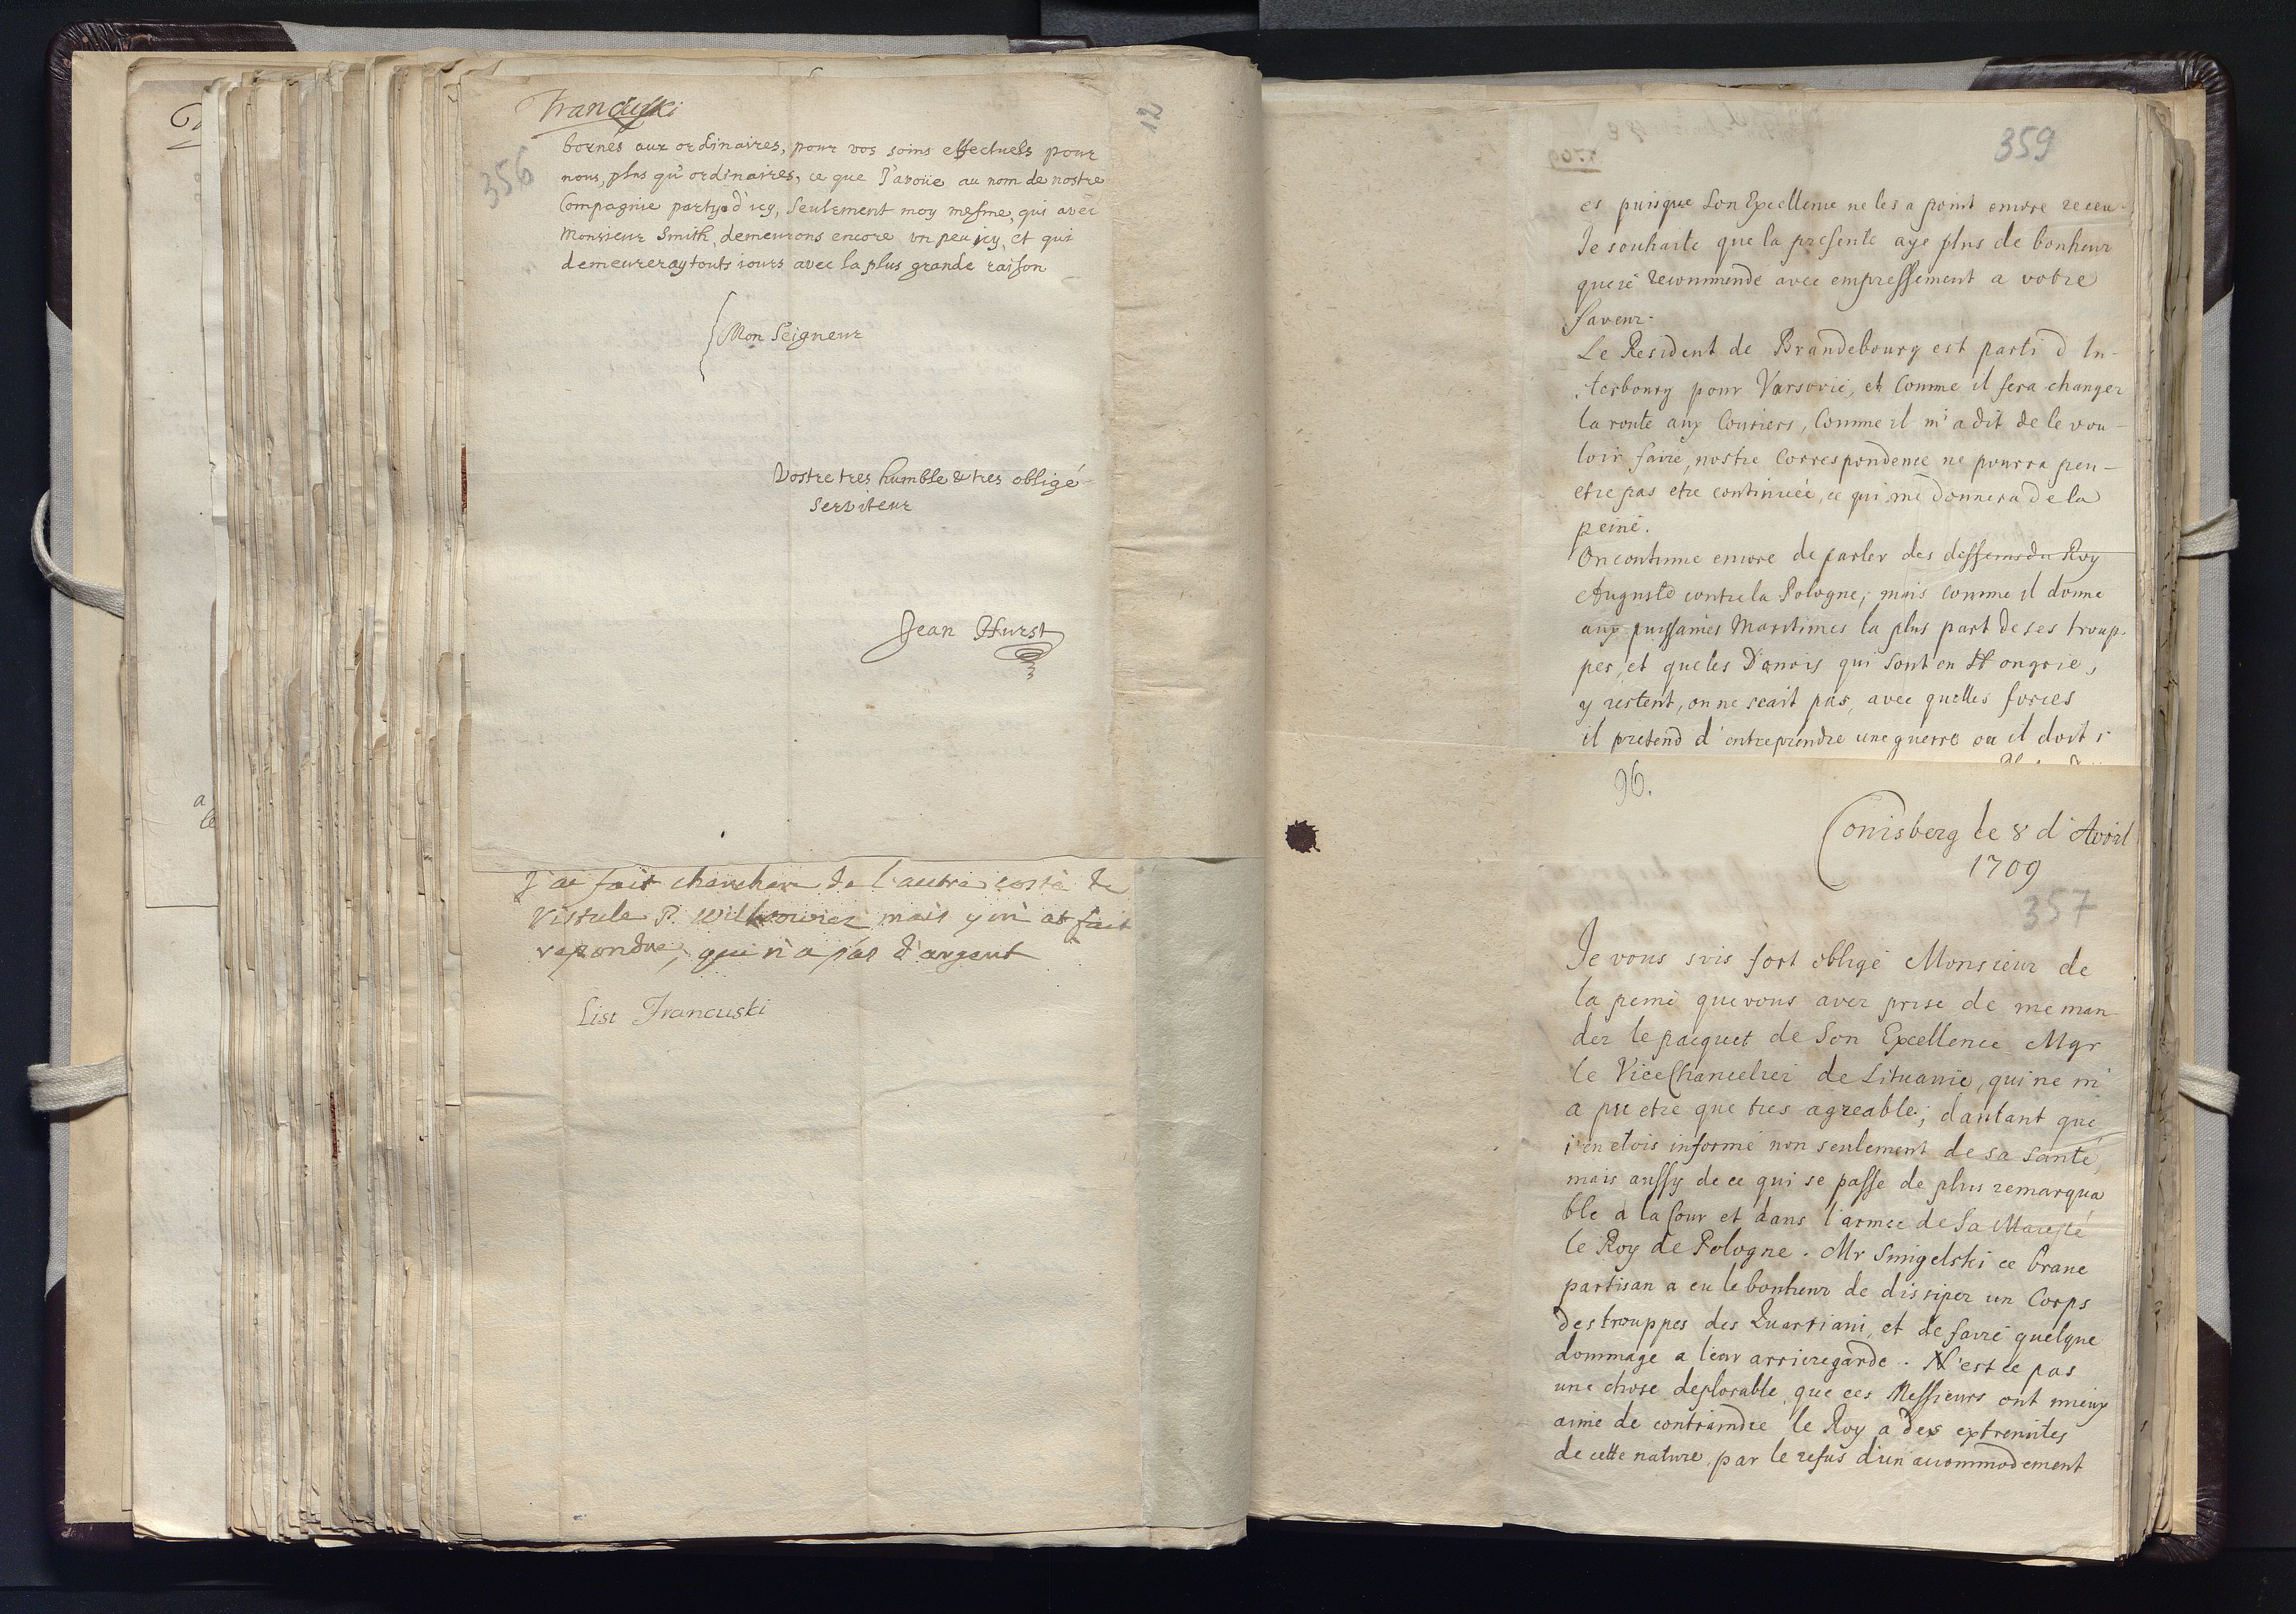 Francuski
356
12
bornés aux ordinaires, pour vos soins effectuels pour
nous, plus qu'ordinaires, ce que J'avoüe au nom de nostre
Compagnie partye d'icy, Seulement moy mesme, qui avec
Monsieur Smith, demeurons encore un peu icy, et qui
demeureray touts iours avec la plus grande raison
Mon Seigneur
Vostre tres humble & tres obligé
Serviteur
Jean Hurst
J'ae fait cherchere de l'autre costé de
Vistule P. mais y m'at fait
repondre, que n'a pas d'argent
List Francuski
359
es puisque Son Excellence ne les a point encore receu
Je souhaite que la presente aye plus de bonheur
que ie recommende avec empressement a votre
faveur.
Le Resident de Brandebourg est parti d In-
sterbourg pour Varsovie, et Comme il fera changer
la route aux Couriers, Comme il m'a dit de le vou-
loir faire, nostre Correspondence ne pourra peu-
etre pas etre continuée, ce qui me donnera de la
peine.
On continue encore de parler des desseins du Roy
Auguste contre la Pologne; mais Comme il donne
aux puissances Maritimes la plus part de ses troup-
pes, et que les Danois qui sont en Hongrie,
y restent, on ne scait pas, avec quelles forces
il pretend d'entreprendre une guerre ou il doit s
96.
Conisberg le 8 d'Avril
1709
357
Je vous suis fort obligé Monsieur de
la peine que vous avez prise de me man-
der le pacquet de Son Excellence Mgr
le ViceChancelier de Lituanie, qui ne m'
a pu etre que tres agreable; dautant que
i'en etois informé non seulement de sa santé,
mais aussy de ce qui se passe de plus remarqua
ble a la Cour et dans l'armée de Sa Maiesté
le Roy de Pologne. Mr Smigelski ce brave
partisan a eu le bonheur de dissiper un Corps
des trouppes des Quartiani, et de faire quelque
dommage a leur arrieregarde. N'est ce pas
une chose deplorable, que ces Messieurs ont mieux
aimé de contraindre le Roy a des extremites
de cette nature, par le refus d'un accommodement